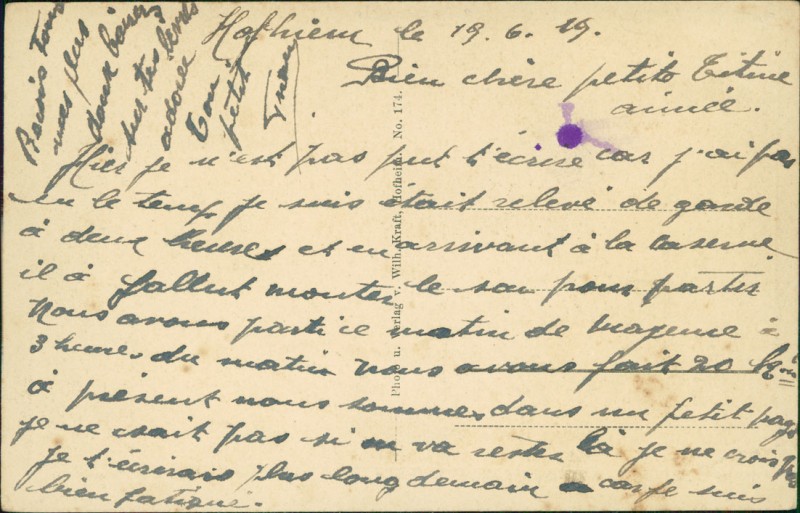 Hofhiem le 19.6.19.
Bien chère petite Titine
aimée.
Hier je n'est pas put t'écrire car j'ai pas
eu le temp je suis était relevé de garde
à deux heures et en arrivant à la caserne
il à fallut monter le sac pour partir
Nous avons parti ce matin de Mayence à
3 heures du matin nous avons fait 20 Km
à présent nous sommes dans un petit pays
je ne sait pas si on va rester là je ne crois pas
je t'écrirais plus long demain car je suis
bien fatigué.
Recois tous
mes plus
doux baisers
sur tes lèvres
adorée
Ton
petit
Phot. u. Verlag v. Wilh. Kraft, Hofheim. No. 174.